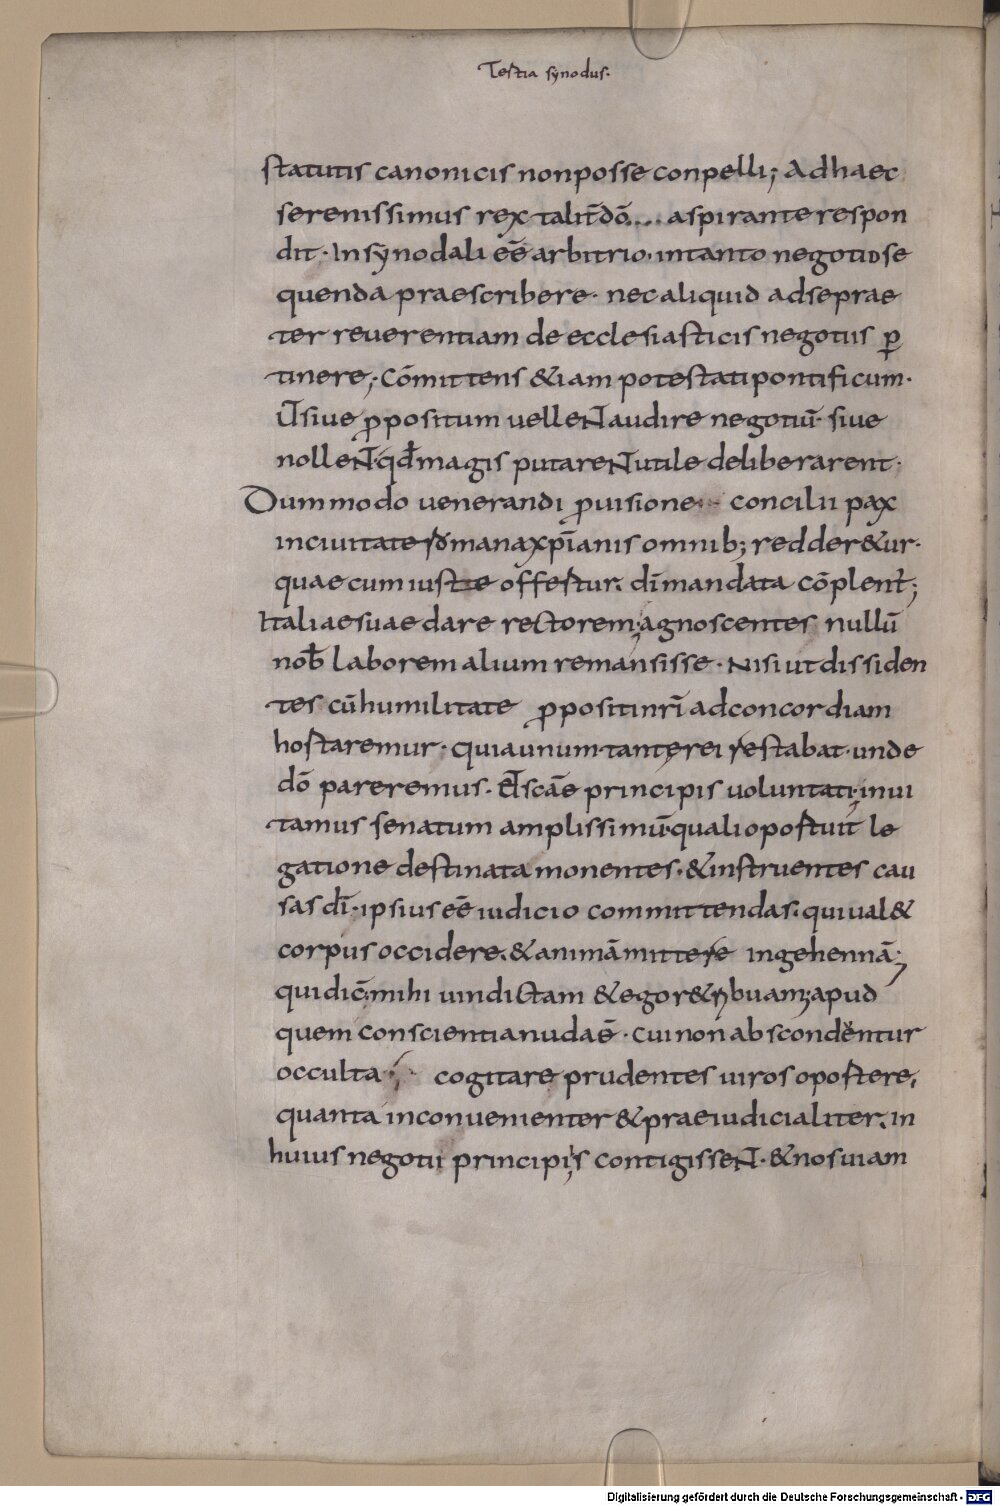 Testia synodus.
statutis canonicis nonposse conpelli; Adhaec
serenissimus rex talit̄ dō.... aspirante respon
dit· Insynodali eē arbitrio· intanto negotio se
quenda praescribere· nec aliquid adseprae
ter reuerentiam de ecclesiasticis negotiis p̱
tinere; Cōmittens &iam potestati pontificum·
Ut̄ siue p̱positum uelleNt audire negotiū· siue
nolleNt· qd̄ magis putareNt utile deliberarent·
Dummodo uenerandi p̱uisione concilii pax
inciuitate romana xp̄ianis omnib; redder&ur·
quae cum iuste offertur. dī mandata cōplent̄;
Italiae suae dare rectorem; agnoscentes nullū
nob̄ laborem alium remansisse· Nisi ut dissiden
tes cū humilitate p̱positi nr̄i adconcordiam
hortaremur· quia unum tantę rei restabat· unde
dō pareremus· Et scāe principis uoluntati; inui
tamus senatum amplissimū· quali oportuit le
gatione destinata monentes· &instruentes cau
sas dī· ipsius eē iudicio committendas· qui ual&
corpus occidere. &animā mittere ingehennā;
qui dic̄; mihi uindictam &ego r&ribuam; apud
quem conscientia nuda ē· cui non abscondentur
occulta; cogitare prudentes uiros oportere,
quanta inconuenienter &praeiudicialiter. in
huius negotii principiis contigisseNt· &nos uiam
Digitalisierung gefördert durch die Deutsche Forschungsgemeinschaft - DFG